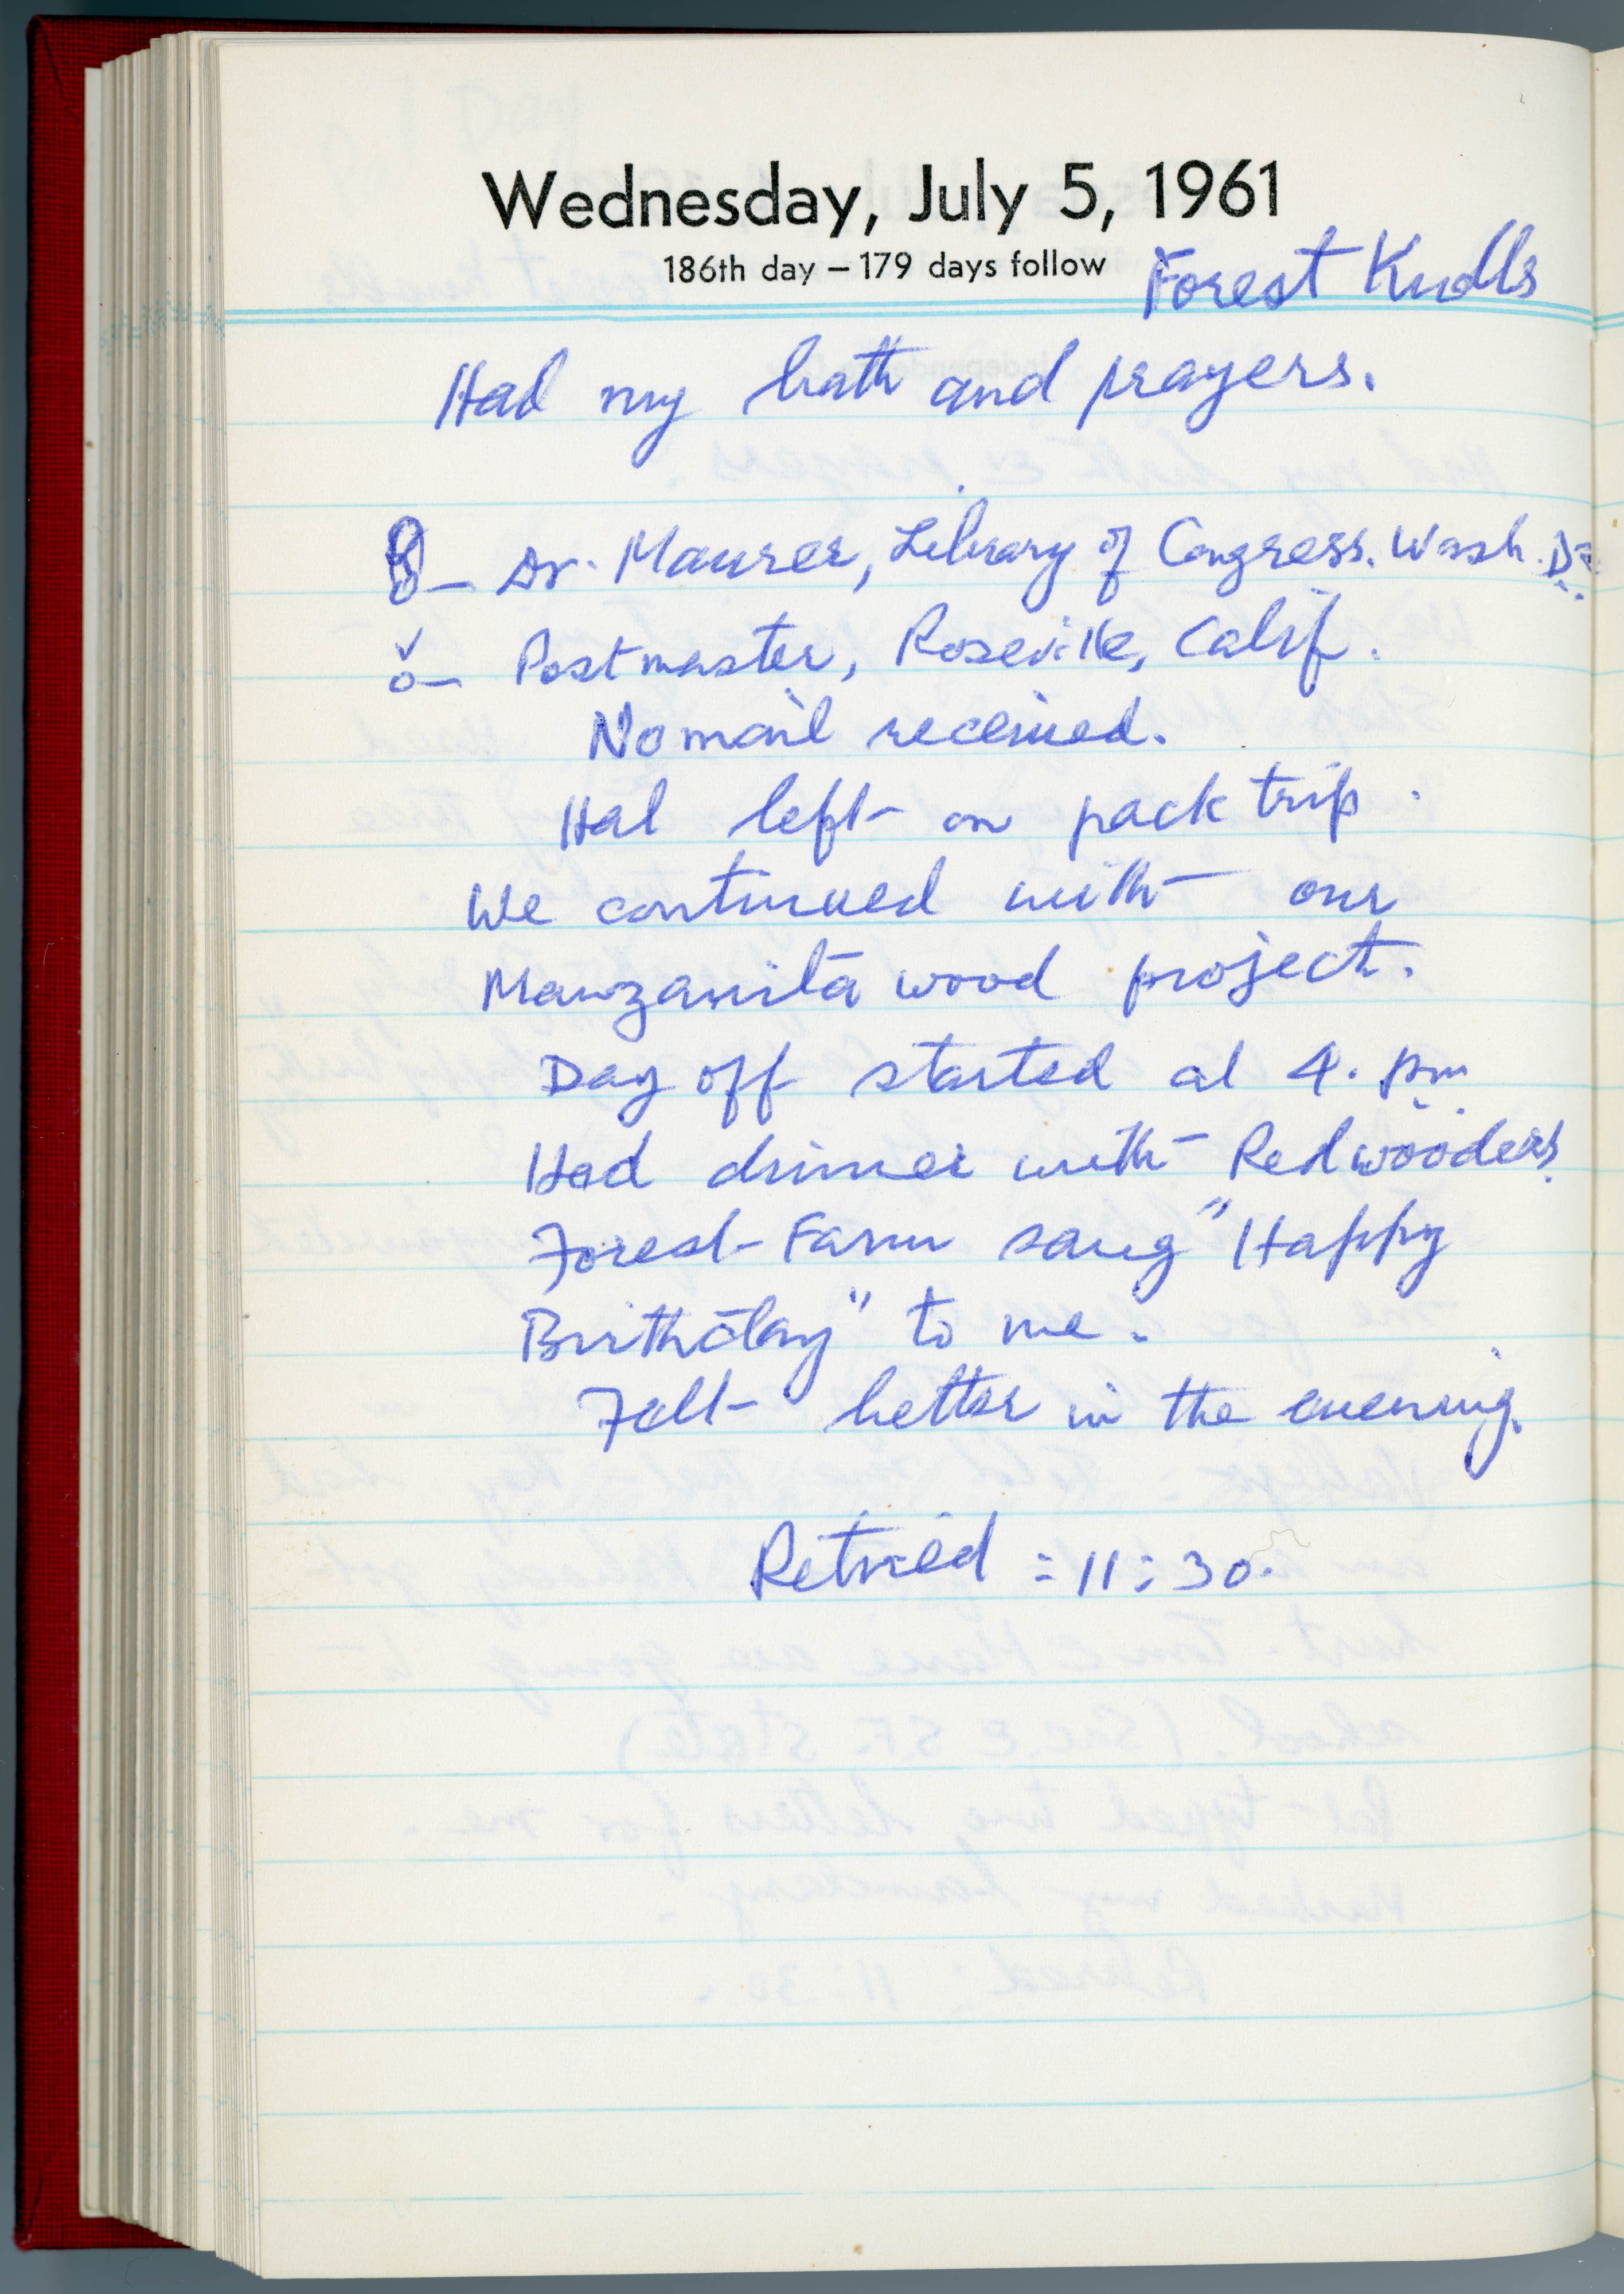 Wednesday, July 5, 1961
186th day – 179 days follow
Forest Knolls
Had my bath and prayers.
Dr. Maurer, Library of Congress. Wash. D.C.
Postmaster, Roseville, Calif.
No mail received.
Hal left on pack trip.
We continued with our
Manzanita wood project.
Day off started at 4. pm
Had dinner with Redwooders.
Forest Farm sang "Happy
Birthday" to me.
Felt better in the evening.
Retired : 11:30.